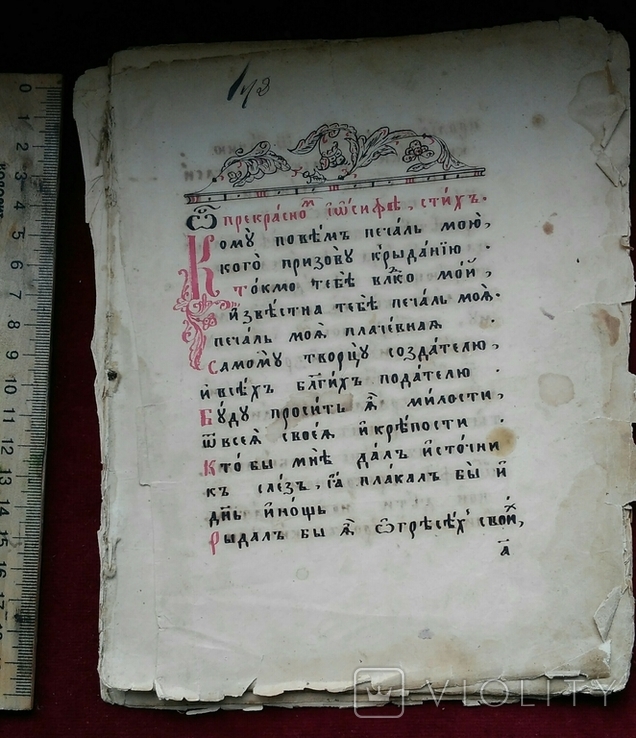 Ѿ прекра́сномъ іѡ́сифѣ, сти́хъ.
Кому̀ повѣ́мъ печа́ль мою̀,
кого̀ призовꙋ̀ крыда́нїю
то́кмо тебѣ̀ влⷣко мо́й,
и҆звѣ́стна тебѣ̀ печа́ль моѧ̀.
печа́ль моѧ̀ плаче́внаѧ
Самомꙋ̀ творцꙋ̀ созда́телю,
и҆всѣ́хъ бл҃ги́хъ пода́телю
Бꙋ́дꙋ проси́ть ѧ҆̀ ми́лости,
ѿ всеѧ̀ своеѧ̀ и҆крѣ́пости
Кто́ бы мнѣ̀ да́лъ и҆сто́чни
къ сле́зъ, ꙗ҆̀ пла́калъ бы̀ и҆
дн҃ь и҆но́щь
Рыда́лъ бы ѧ҆̀ ѡ҆грѣсѣ́хъ свои́хъ,
а҃
VIOLITY